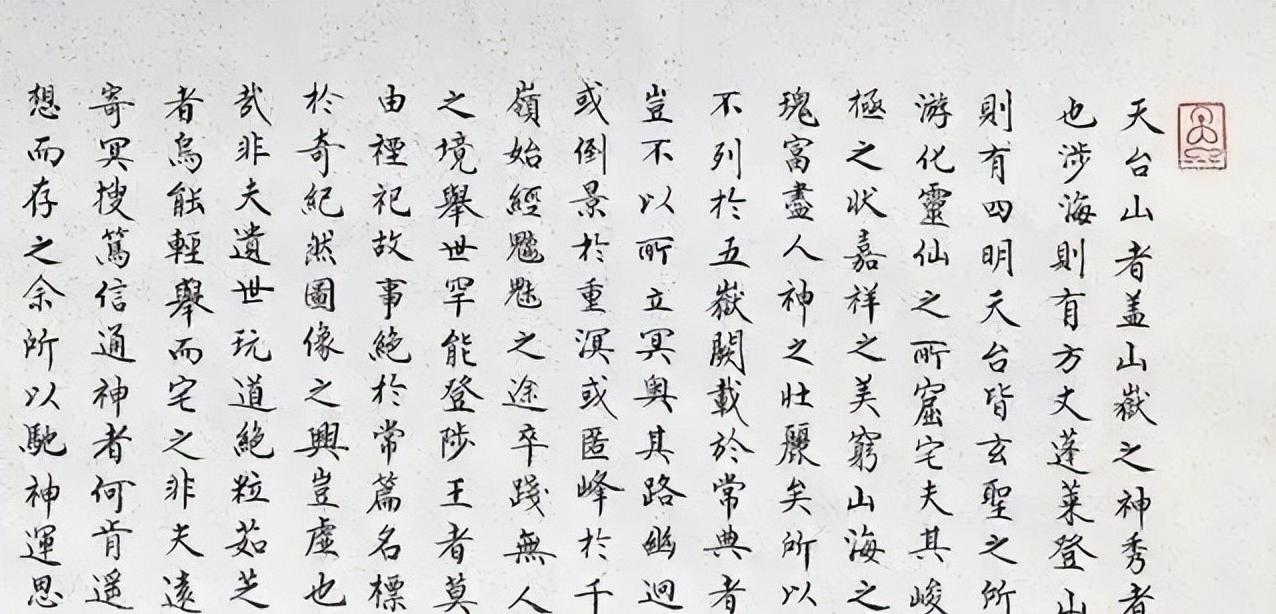 天台山者盖山嶽之神秀者
也涉海則有方丈蓬萊登山
則有四明天台皆玄聖之所
游化靈仙之所窟宅夫其峻
極之状嘉祥之美窮山海之
瑰富盡人神之壯麗矣所以
不列於五嶽闕載於常典者
豈不以所立冥奥其路幽迥
或倒景於重溟或匿峰於千
嶺始經魑魅之途卒踐無人
之境舉世罕能登陟王者莫
由禋祀故事絕於常篇名標
於奇紀然圖像之興豈虛也
哉非夫遺世玩道絕粒茹芝
者烏能輕舉而宅之非夫遠
寄冥搜篤信通神者何肯遥
想而存之余所以馳神運思